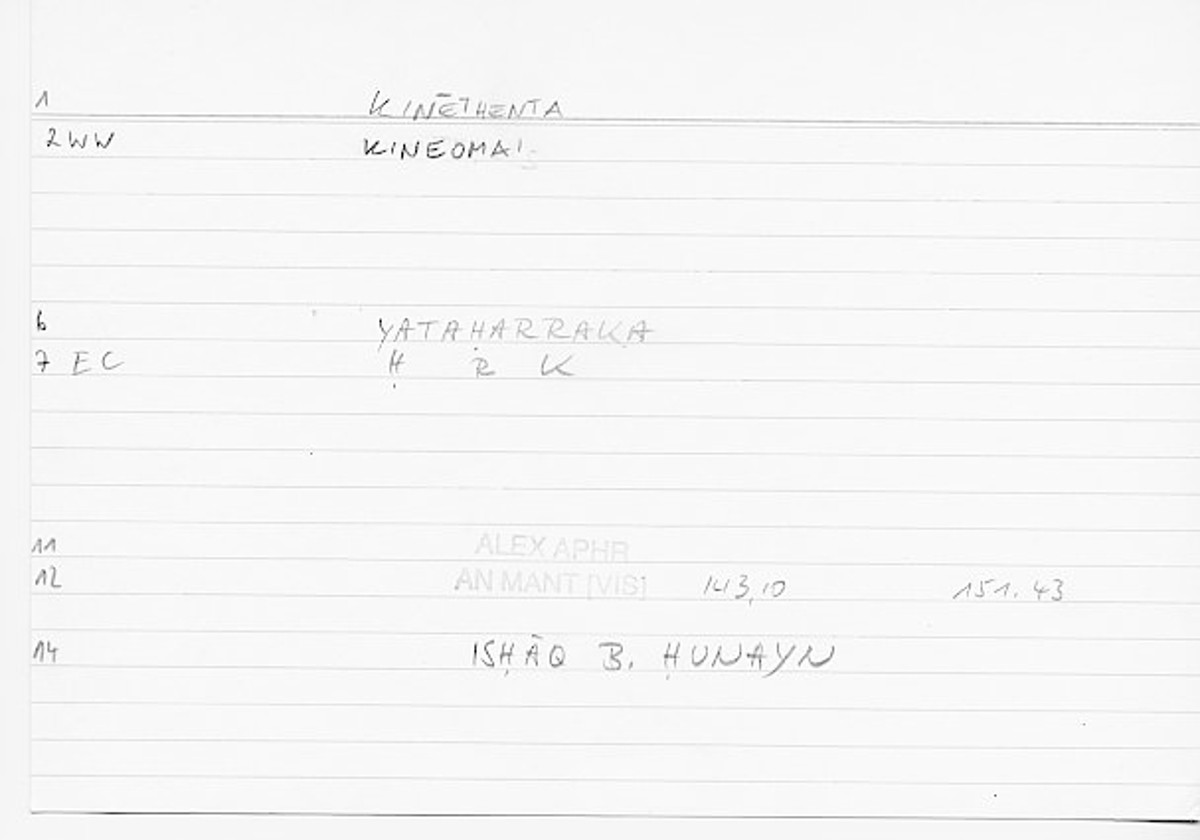 1 KINĒTHENTA
2WW KINEOMAI
6 YATAḤARRAKA
7 EC Ḥ R K
11 ALEX APHR
12 AN MANT [VIS] 143,10 151.43
14 ISḤĀQ B. ḤUNAYN